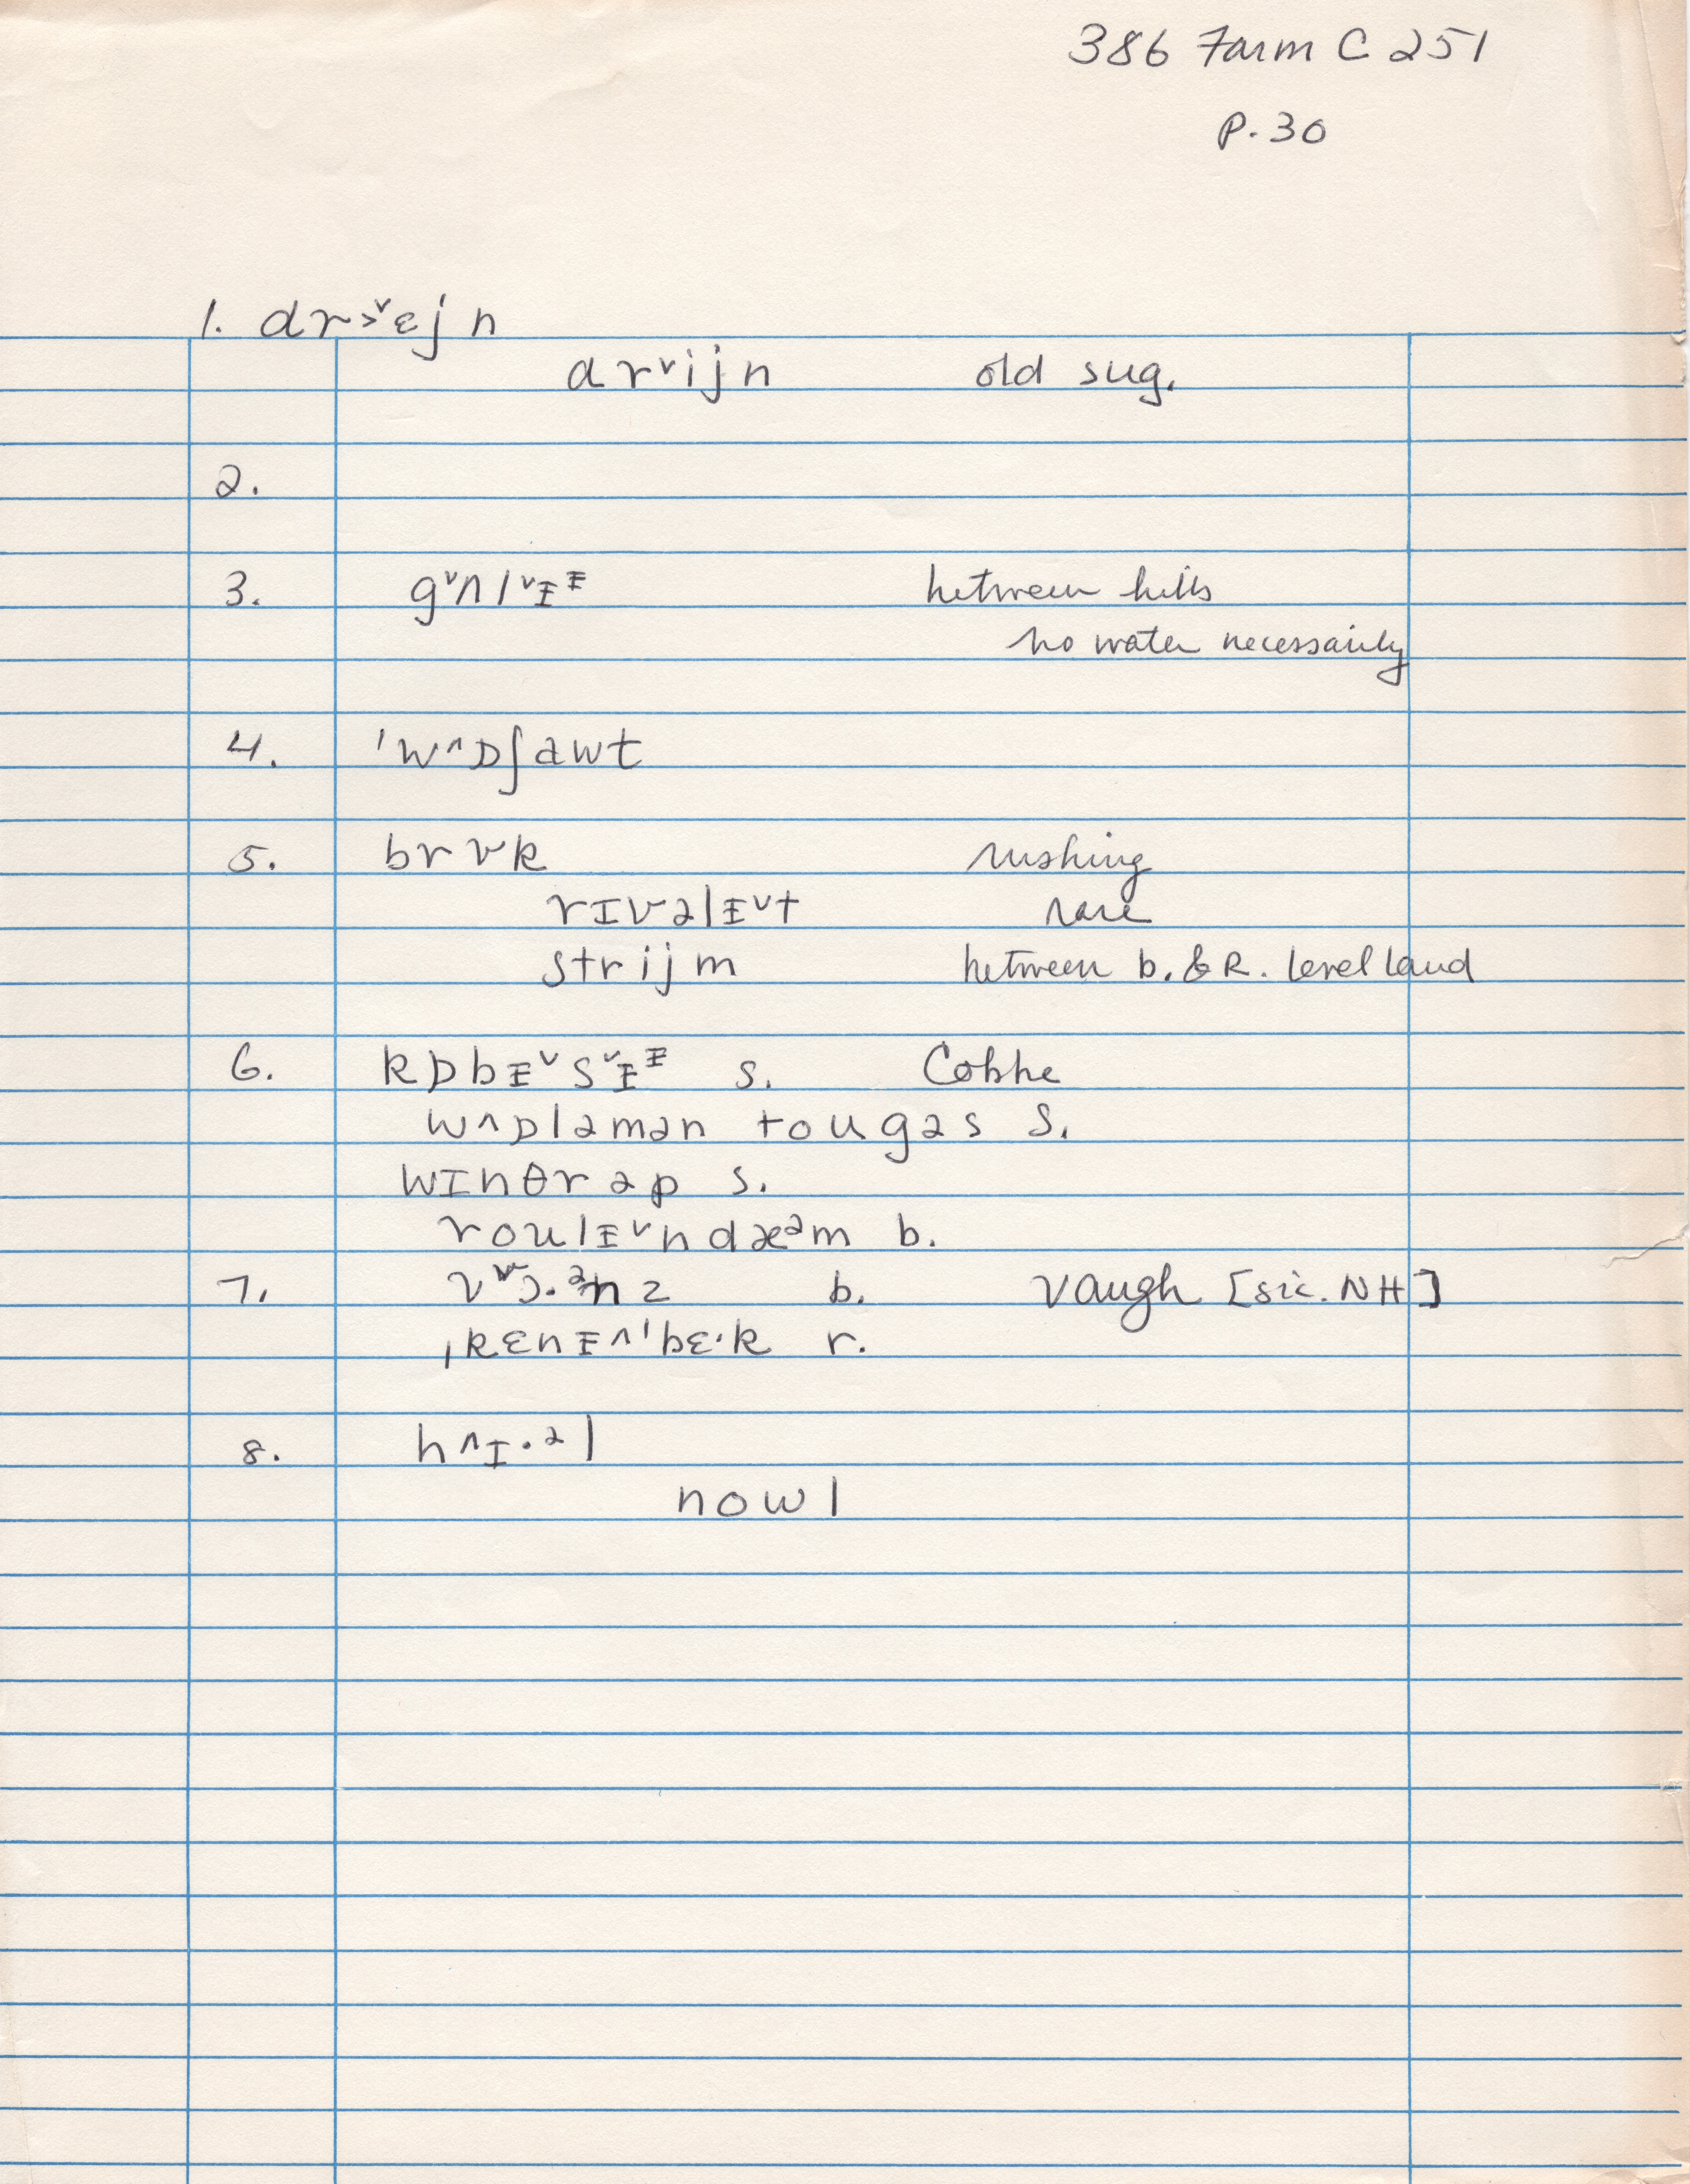 386 Farm C 251
P. 30
1. dr>ˇɛj n
drˇijn old sug.
2.
3. gˇʌlˇᵻᵻ between hills
no water necessarily
4. 'w^ɒʃawt
5. brʊk rushing
rɪvəlᵻˇt rare
strijm between b. & R. level land
6. kɒbᵻˇsˇᵻᵻ s. Cobbe
w^ɒləmən tougəs s.
wɪnθrəp s.
roulᵻˇndæᵊm b.
7. b. Vaugh [sic. NH]
ˌkɛnᵻ^'bɛ·k r.
8. h^ɪ·ᵊl
nowl